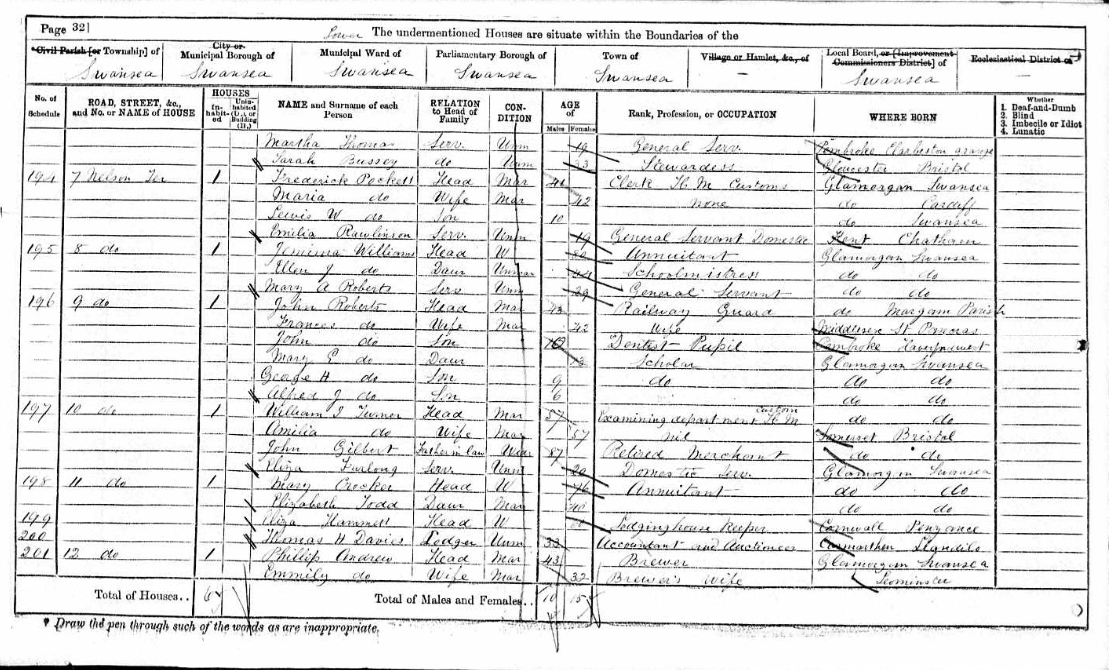 Page 32
Lower The undermentioned Houses are situate within the Boundaries of the
Civil Parish [or Township] of
City or Municipal Borough of
Municipal Ward of
Parliamentary Borough of
Town of
Village or Hamlet, &c., of
Local Board, or [Improvement Commissioners District] of
Ecclesiastical District of
Swansea Swansea Swansea Swansea Swansea — Swansea
No. of Schedule
ROAD, STREET, &c., and No. or NAME of HOUSE
HOUSES
Inhabited
Uninhabited (U.), or Building (B.)
NAME and Surname of each Person
RELATION to Head of Family
CONDITION
AGE of
Males Females
Rank, Profession, or OCCUPATION
WHERE BORN
Whether
1. Deaf-and-Dumb
2. Blind
3. Imbecile or Idiot
4. Lunatic
Martha Thomas Serv. Unm 19 General Serv. Pembroke
Sarah Bussey do Unm 33 Stewardess Gloucester Bristol
194 7 Nelson Ter 1 Frederick Pockett Head Mar 41 Clerk H. M Customs Glamorgan Swansea
Maria do Wife Mar 42 none do Cardiff
Lewis W do Son 10 do Swansea
Emilia Rawlinson Serv. Unm 19 General Servant Domestic Kent Chatham
195 8 do 1 Jemima Williams Head W Annuitant Glamorgan Swansea
Ellen J do Daur Unmar 44 Schoolmistress do do
Mary A Roberts Serv Unm 29 General Servant do do
196 9 do 1 John Roberts Head Mar 43 Railway Guard do Margam Parish
Frances do Wife Mar 42 Wife Middlesex St. Pancras
John do Son Dentist Pupil Pembroke Haverfordwest
Mary E do Daur Scholar Glamorgan Swansea
George H do Son 9 do do do
Alfred J do Son 6 do do
197 10 do 1 William J Turner Head Mar 57 Examining department H. M Custom do do
Amilia do Wife Mar 57 Nil Somerset Bristol
John Gilbert Father in law Wid 87 Retired Merchant do do
Eliza Furlong Serv. Unm 20 Domestic Serv. Glamorgan Swansea
198 11 do 1 Mary Crocker Head W 76 Annuitant do do
Elizabeth Todd Daur Mar 40 do do
199 Eliza Hammett Head W Lodginghouse Keeper Cornwall Penzance
200 Thomas H Davies Lodger Unm 33 Accountant and Auctioneer Carmarthen Llandilo
201 12 do 1 Philip Andrew Head Mar 43 Brewer Glamorgan Swansea
Emmily do Wife Mar 32 Brewer's Wife Leominster
Total of Houses.. 6 Total of Males and Females.. 10 15
* Draw the pen through such of the words as are inappropriate.